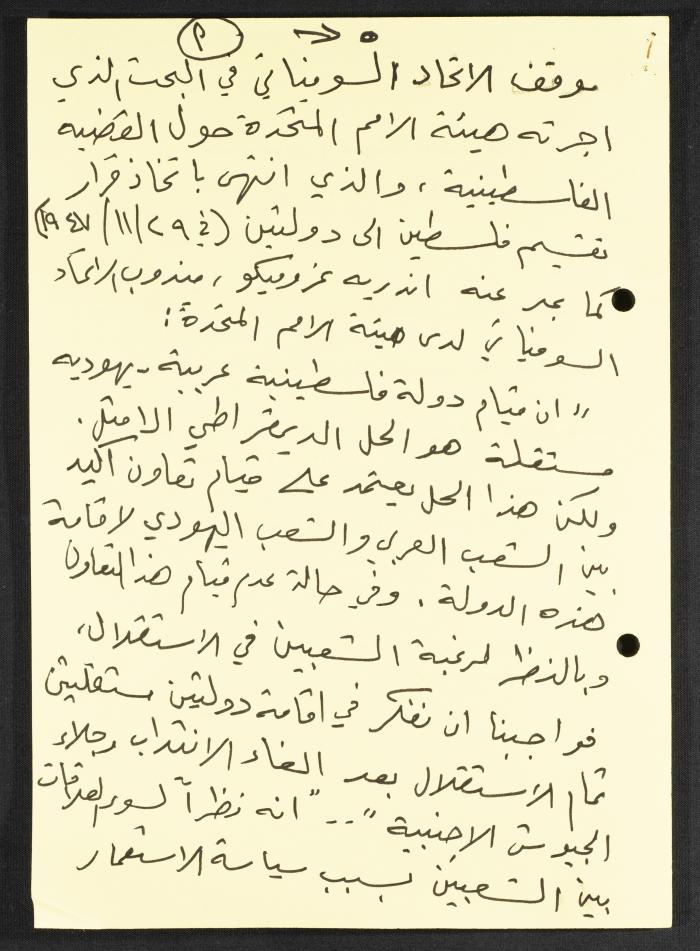 م
موقف الاتحاد السوفياتي في البحث الذي
اجرته هيئة الامم المتحدة حول القضيه
الفلسطينية، والذي انتهى باتخاذ قرار
تقسيم فلسطين الى دولتين (في ٢٩/١١/١٩٤٧)
كما عبر عنه اندريه غروميكو، مندوب الاتحاد
السوفياتي لدى هيئة الامم المتحدة:
"ان قيام دولة فلسطينية عربية - يهوديه
مستقلة هو الحل الديمقراطي الامثل.
ولكن هذا الحل يعتمد على قيام تعاون اكيد
بين الشعب العربي والشعب اليهودي لاقامة
هذه الدولة. وفي حالة عدم قيام هذا التعاون
وبالنظر لرغبة الشعبين في الاستقلال،
فواجبنا ان نفكر في اقامة دولتين مستقلتين
تمام الاستقلال بعد الغاء الانتداب وجلاء
الجيوش الاجنبية".. "انه نظراً لسوء العلاقات
بين الشعبين بسبب سياسة الاستعمار